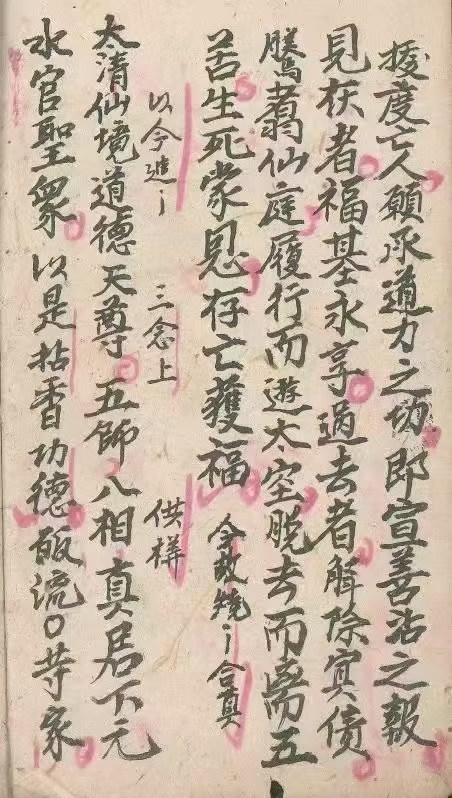 援度亡人願承道力之功即宣善沾之報
見在者福基永享過去者解除冥債
騰翥仙庭履行而遊太空脱去而离五
苦生死蒙恩存亡獲福　令散繞〻合真
以今進〻　三念上　供樣
太清仙境道德天尊　五師八相真君下元
水官聖衆以是拈香功德皈流〇等家